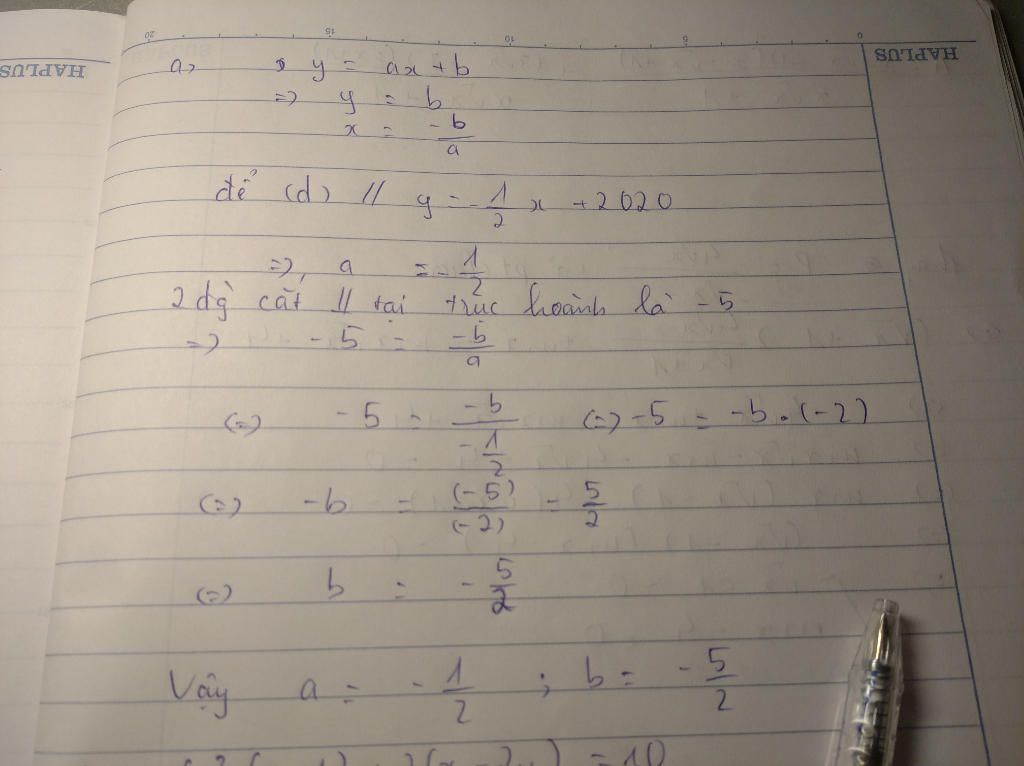 HAPLUS
20 15 10 5 0
HAPLUS
a, y = ax + b
=> y = b
x = -b/a
để (d) // y = -1/2 x + 2020
=> a = -1/2
2 đg cắt // tại trục hoành là -5
=> -5 = -b/a
(=) -5 = -b/(-1/2) (=) -5 = -b . (-2)
(=) -b = (-5)/(-2) = 5/2
(=) b = -5/2
Vậy a = -1/2 ; b = -5/2
= 10